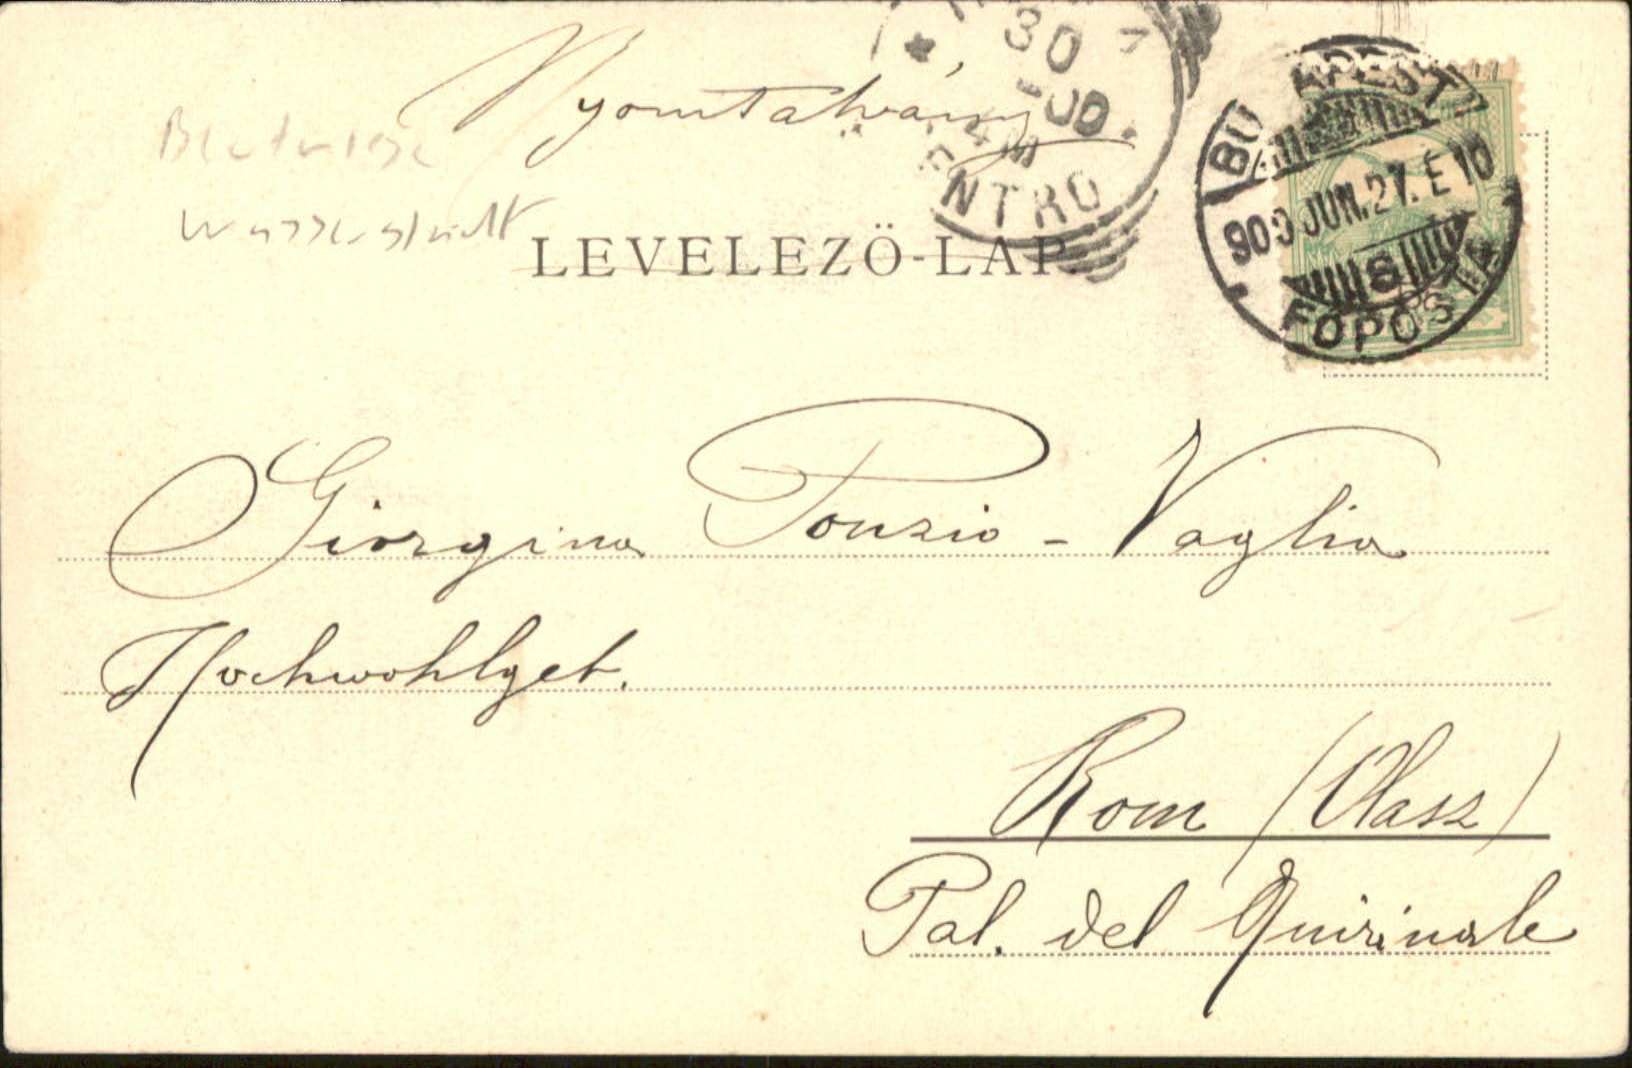 Nyomtatvány
Wasserstadt
LEVELEZŐ-LAP.
30
00
NTRO
BUDAPEST
900 JUN. 27. E 10
8
FŐPOSTA
Giorgina Ponzio - Vaglia
Hochwohlgeb.
Rom (Olasz)
Pal. del Quirinale